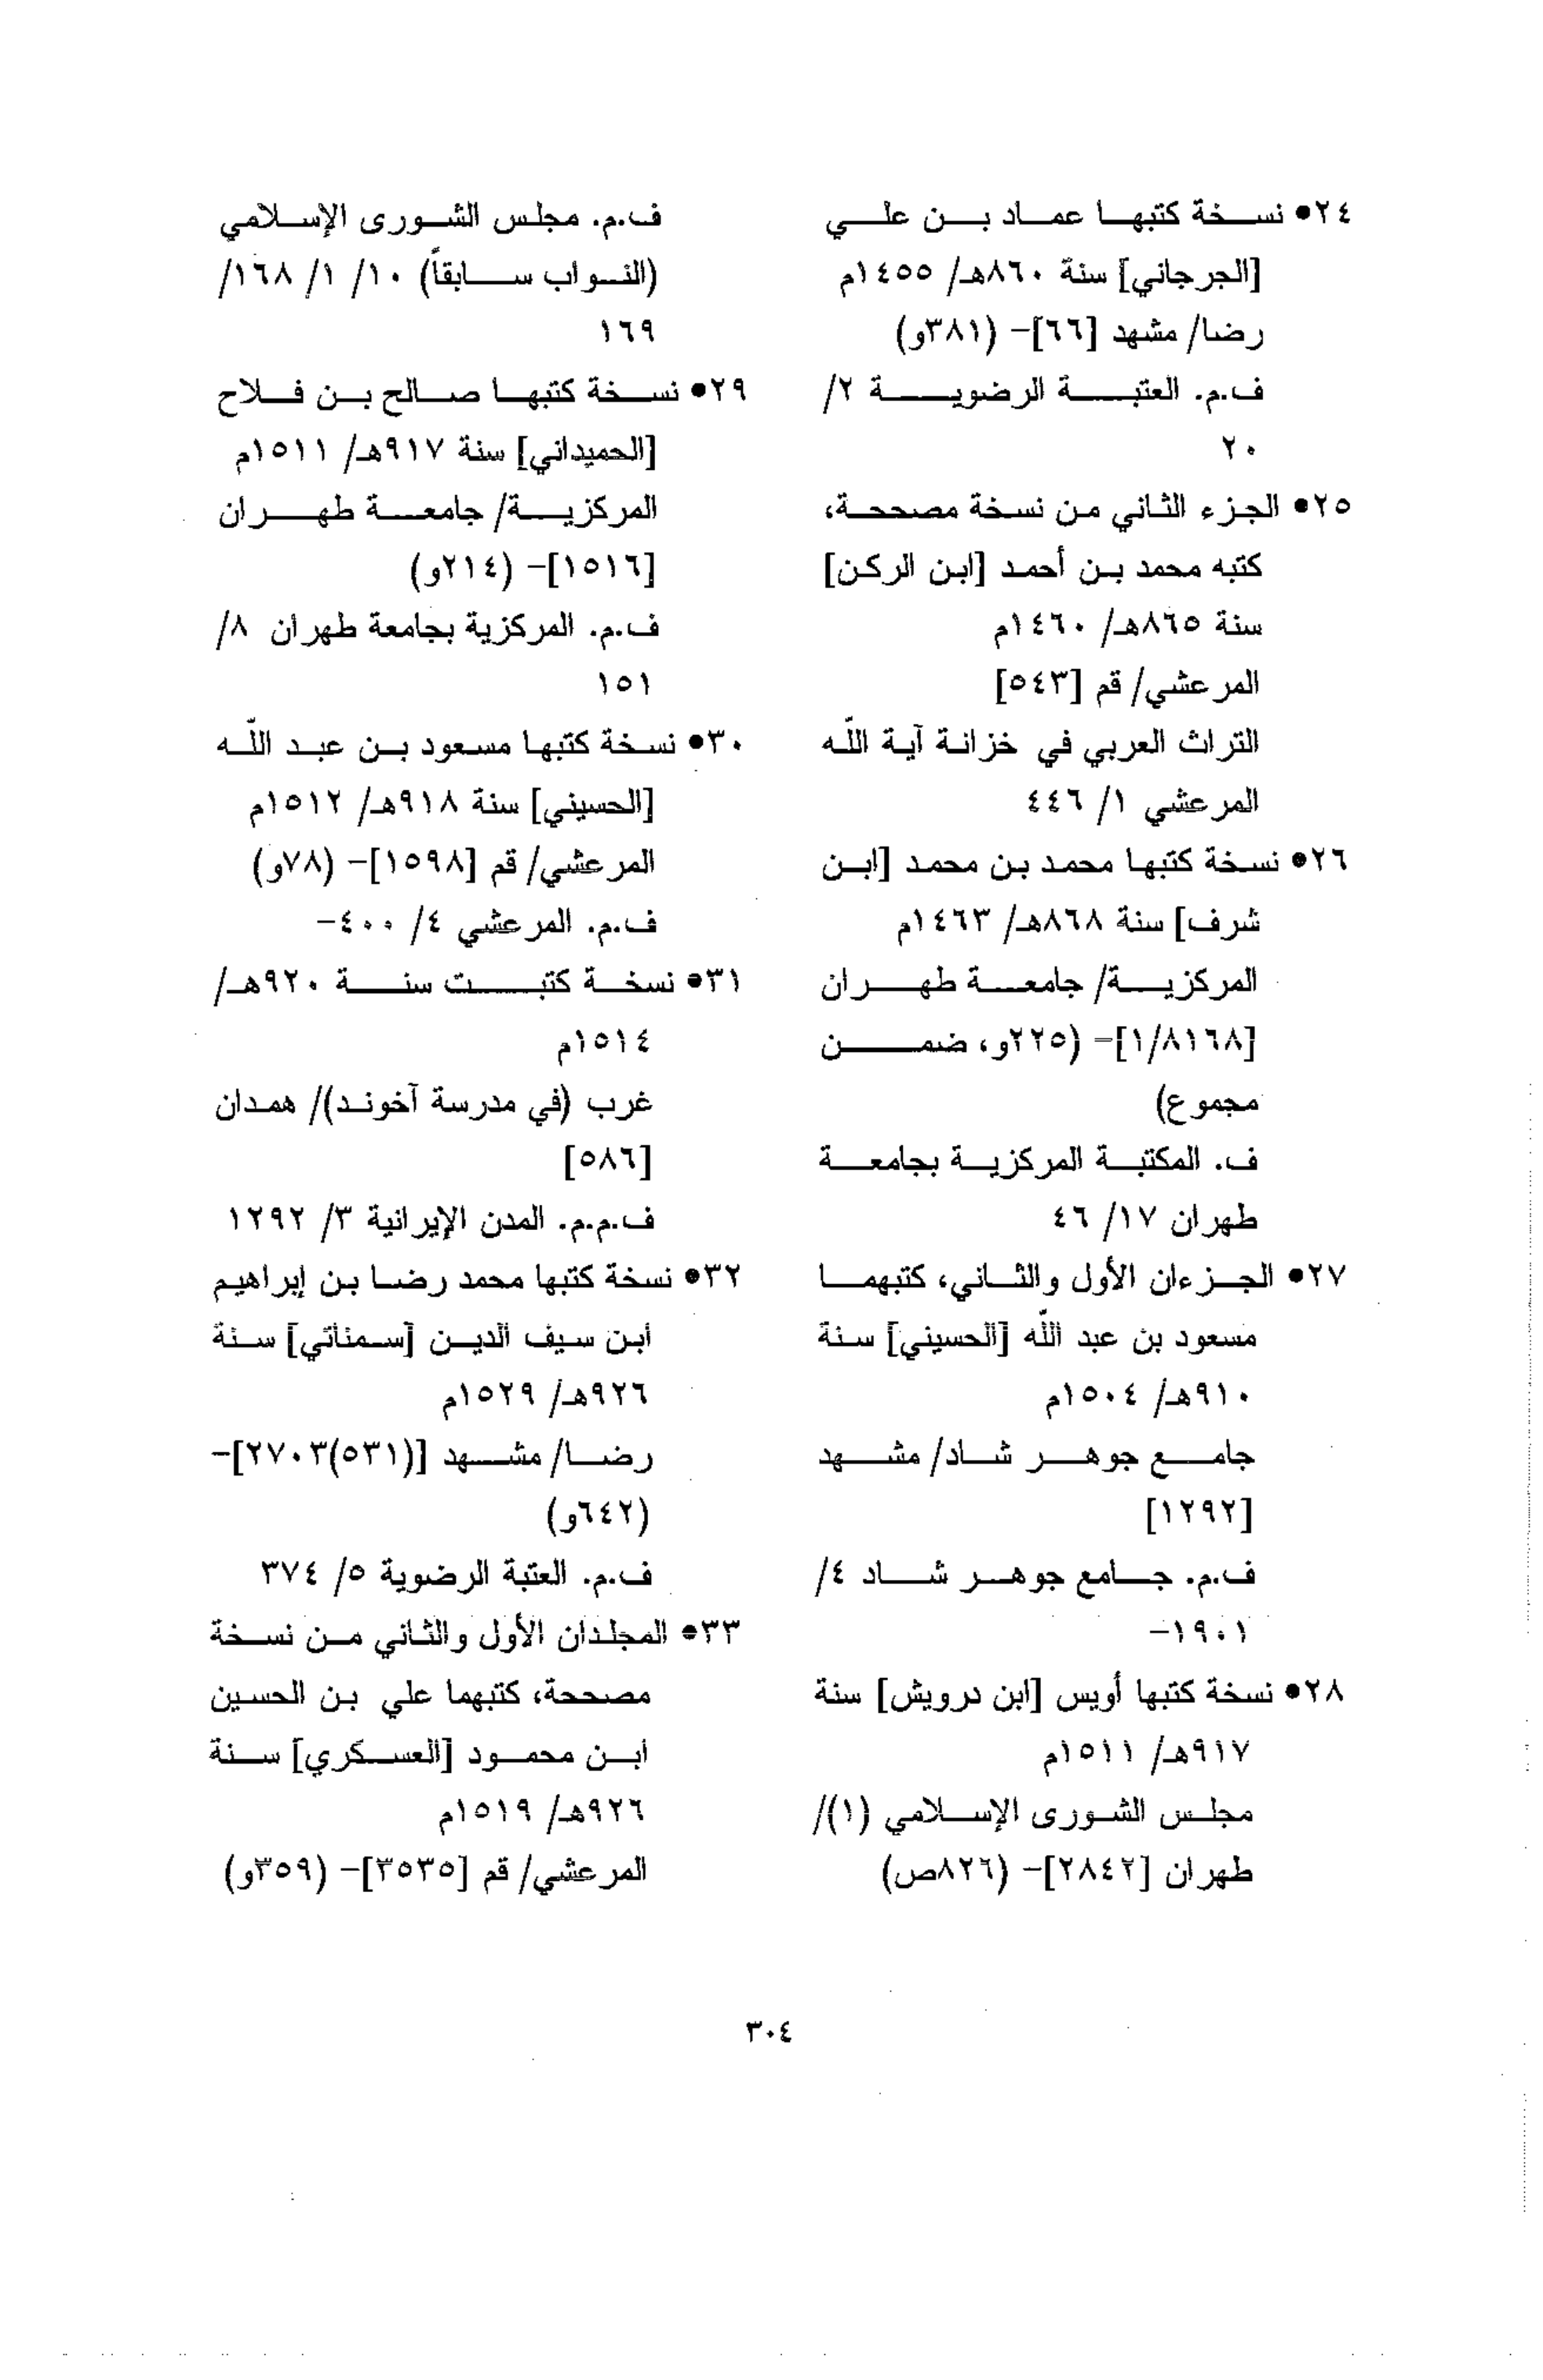 ٢٤● نسخة كتبها عماد بن علي
[الجرجاني] سنة ٨٦٠هـ/ ١٤٥٥م
رضا/ مشهد [٦٦]- (٣٨١و)
ف.م. العتبة الرضوية ٢/
٢٠
٢٥● الجزء الثاني من نسخة مصححة،
كتبه محمد بن أحمد [ابن الركن]
سنة ٨٦٥هـ/ ١٤٦٠م
المرعشي/ قم [٥٤٣]
التراث العربي في خزانة آية اللّه
المرعشي ١/ ٤٤٦
٢٦● نسخة كتبها محمد بن محمد [ابن
شرف] سنة ٨٦٨هـ/ ١٤٦٣م
المركزية/ جامعة طهران
[١/٨١٦٨]- (٢٢٥و، ضمن
مجموع)
ف. المكتبة المركزية بجامعة
طهران ١٧/ ٤٦
٢٧● الجزءان الأول والثاني، كتبهما
مسعود بن عبد اللّه [الحسيني] سنة
٩١٠هـ/ ١٥٠٤م
جامع جوهر شاد/ مشهد
[١٢٩٢]
ف.م. جامع جوهر شاد ٤/
١٩٠١-
٢٨● نسخة كتبها أويس [ابن درويش] سنة
٩١٧هـ/ ١٥١١م
مجلس الشورى الإسلامي (١)/
طهران [٢٨٤٢]- (٨٢٦ص)
ف.م. مجلس الشورى الإسلامي
(النواب سابقاً) ١٠/ ١/ ١٦٨/
١٦٩
٢٩● نسخة كتبها صالح بن فلاح
[الحميداني] سنة ٩١٧هـ/ ١٥١١م
المركزية/ جامعة طهران
[١٥١٦]- (٢١٤و)
ف.م. المركزية بجامعة طهران ٨/
١٥١
٣٠● نسخة كتبها مسعود بن عبد اللّه
[الحسيني] سنة ٩١٨هـ/ ١٥١٢م
المرعشي/ قم [١٥٩٨]- (٧٨و)
ف.م. المرعشي ٤/ ٤٠٠-
٣١● نسخة كتبت سنة ٩٢٠هـ/
١٥١٤م
غرب (في مدرسة آخوند)/ همدان
[٥٨٦]
ف.م.م. المدن الإيرانية ٣/ ١٢٩٢
٣٢● نسخة كتبها محمد رضا بن إبراهيم
ابن سيف الدين [سمناتي] سنة
٩٢٦هـ/ ١٥٢٩م
رضا/ مشهد [(٥٣١)٢٧٠٣]-
(٦٤٢و)
ف.م. العتبة الرضوية ٥/ ٣٧٤
٣٣● المجلدان الأول والثاني من نسخة
مصححة، كتبهما علي بن الحسين
ابن محمود [العسكري] سنة
٩٢٦هـ/ ١٥١٩م
المرعشي/ قم [٣٥٣٥]- (٣٥٩و)
٣٠٤